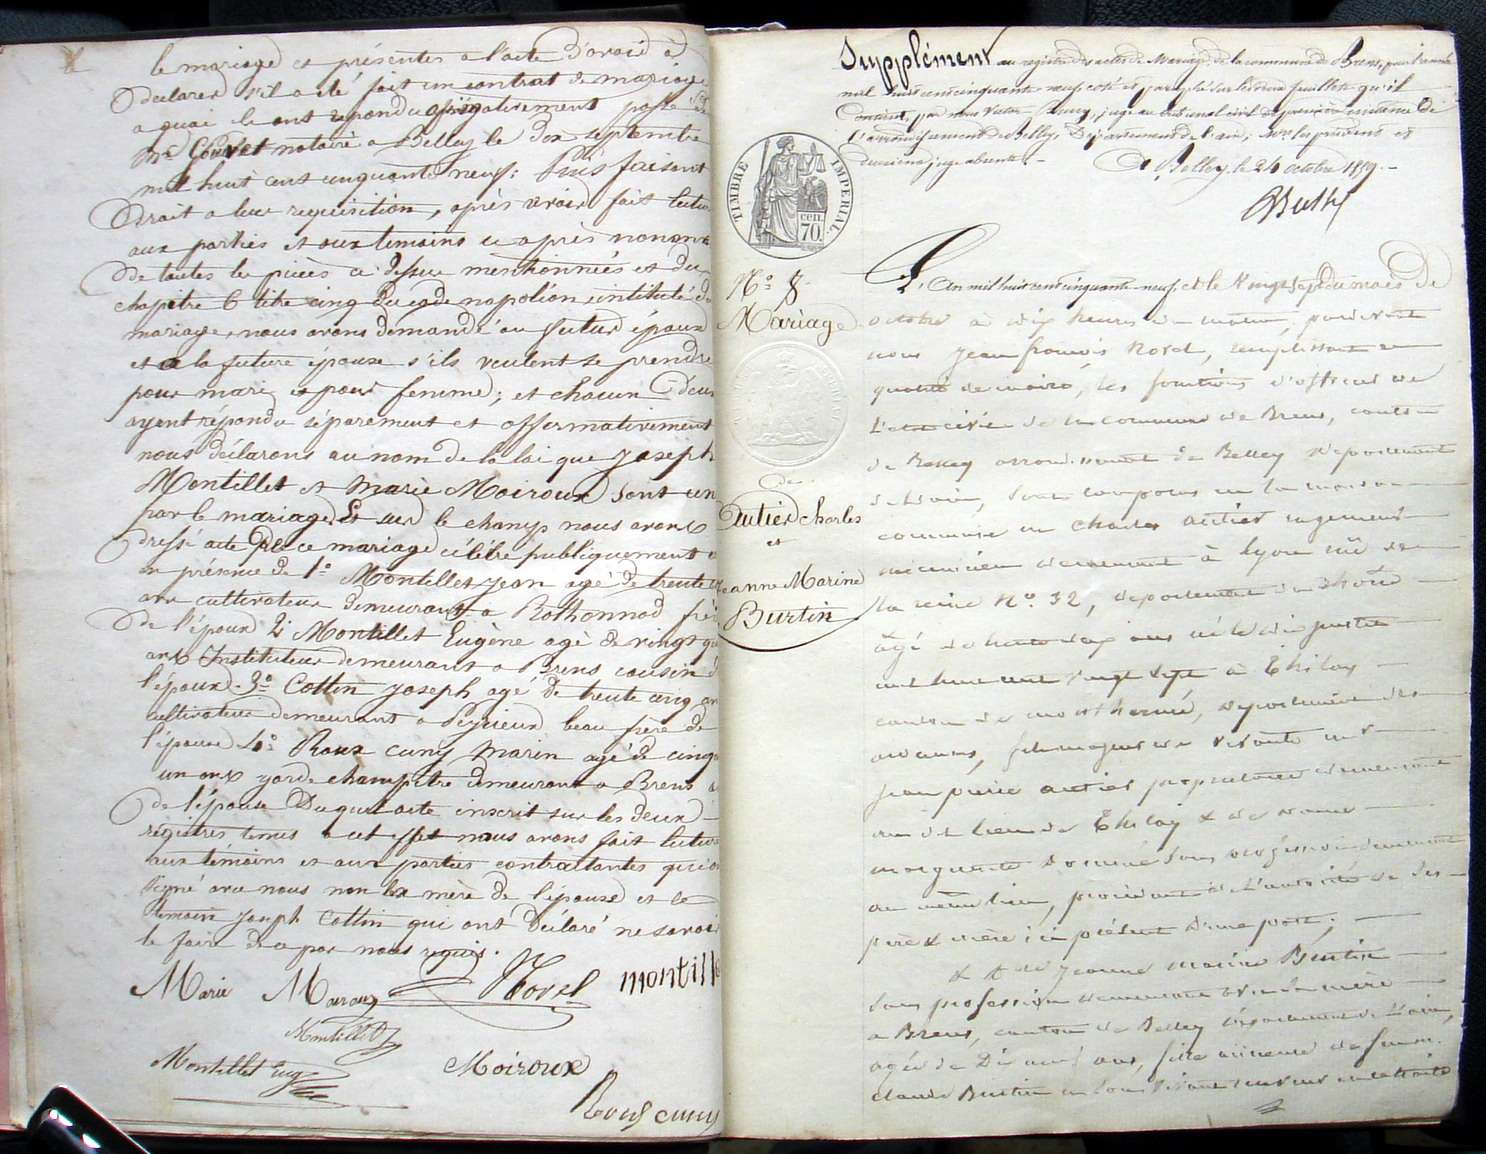 le mariage et présentes a l'acte d'avoir à
declarer s'il a été fait un contrat de mariage
a quoi ils ont repondu affirmativement passé
Me Gouvet notaire a Belley le dix septembre
mil huit cent cinquante neuf; Puis faisant
droit a leur requisition, après avoir fait lectur
aux parties et aux temoins ci après nommé
de toutes les pièces ci dessus mentionnées et du
chapitre 6 titre cinq du code napoléon intitulé du
mariage, nous avons demandé au futur époux
et a la future épouse s'ils veulent se prendre
pour mari et pour femme; et chacun d'eux
ayant répondu séparement et affirmativement
nous déclarons au nom de la loi que Joseph
Montillet et Marie Moiroux sont uni
par le mariage. Et sur le champ nous avons
dressé acte de ce mariage célébré publiquement
en présence de 1o Montillet Jean agé de trente
ans cultivateur demeurant a Rothonnod frèr
de l'époux 2o Montillet Eugène agé de vingt
ans Instituteur demeurant a Brens cousin d
l'époux. 3o Cottin Joseph agé de trente cinq an
cultivateur demeurant a Peyrieux beau frère de
l'épouse 4o Roux Cuny Marin agé de cinqu
un ans garde champêtre demeurant a Brens
de l'épouse Duquel acte inscrit sur les deux
régistres tenus a cet effet nous avons fait lecture
aux témoins et aux parties contractantes qui on
signé avec nous non la mère de l'épouse et le
témoin Joseph Cottin qui ont déclaré ne savoir
le faire de a par nous requis.
Marie Moiroux Novel montille
Montillet
Montillet Eug Moiroux
Roux cuny
Supplément au registre des actes de Mariage de la commune de Brens, pour l'année
mil huit cent cinquante neuf coté et paraphé sur feuillets qu'il
contient, par nous Victor juge au tribunal civil de première instance de
l'arrondissement de Belley, Département de l'ain; Mrs les présidens et
deuxième juge absents.
A Belley, le 24 octobre 1859.
TIMBRE IMPERIAL.
cen.
70.
No 8
Mariage
de
Autier Charles
et
Jeanne Marine
Burtin
L'An mil huit cent cinquante neuf et le vingt sept du mois de
octobre à dix heures du matin, pardevant
nous Jean françois Novel, remplissant en
qualité de maire, les fonctions d'officier de
l'etat civil de la commune de Brens, canton
de Belley arrondissement de Belley département
de l'ain, sont comparus en la maison
commune mr Charles Autier
mécanicien demeurant à Lyon rue de
la reine No. 32, département du Rhône
âgé de trente deux ans né le dix
mil huit cent vingt sept à Thilay
canton de monthermé, département des
ardennes, fils majeur de vivants mr
Jean pierre Autier propriétaire demeurant
au dit lieu de Thilay & de dame
marguerite sans profession demeurant
au même lieu, procédant de l'autorité de ses
père & mère ici présent d'une part;
& Mlle Jeanne marine Burtin
sans profession demeurant avec sa mère
a Brens, canton de Belley département de l'ain,
agée de Dix neuf ans, fille mineure de feu mr.
claude Burtin en son vivant